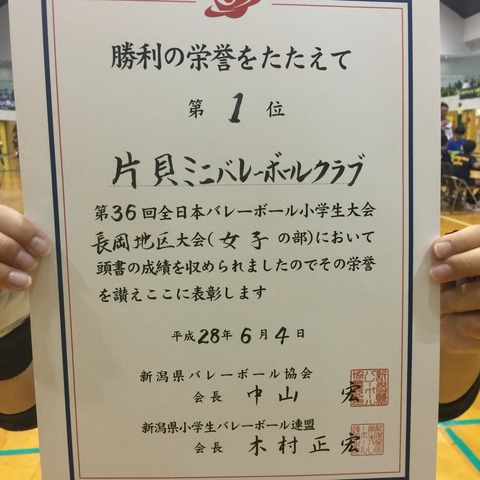 勝利の栄誉をたたえて
第 1 位
片貝ミニバレーボールクラブ
第36回全日本バレーボール小学生大会
長岡地区大会(女子の部)において
頭書の成績を収められましたのでその栄誉
を讃えここに表彰します
平成28年6月4日
新潟県バレーボール協会
会長 中山 宏
新潟県小学生バレーボール連盟
会長 木村正宏